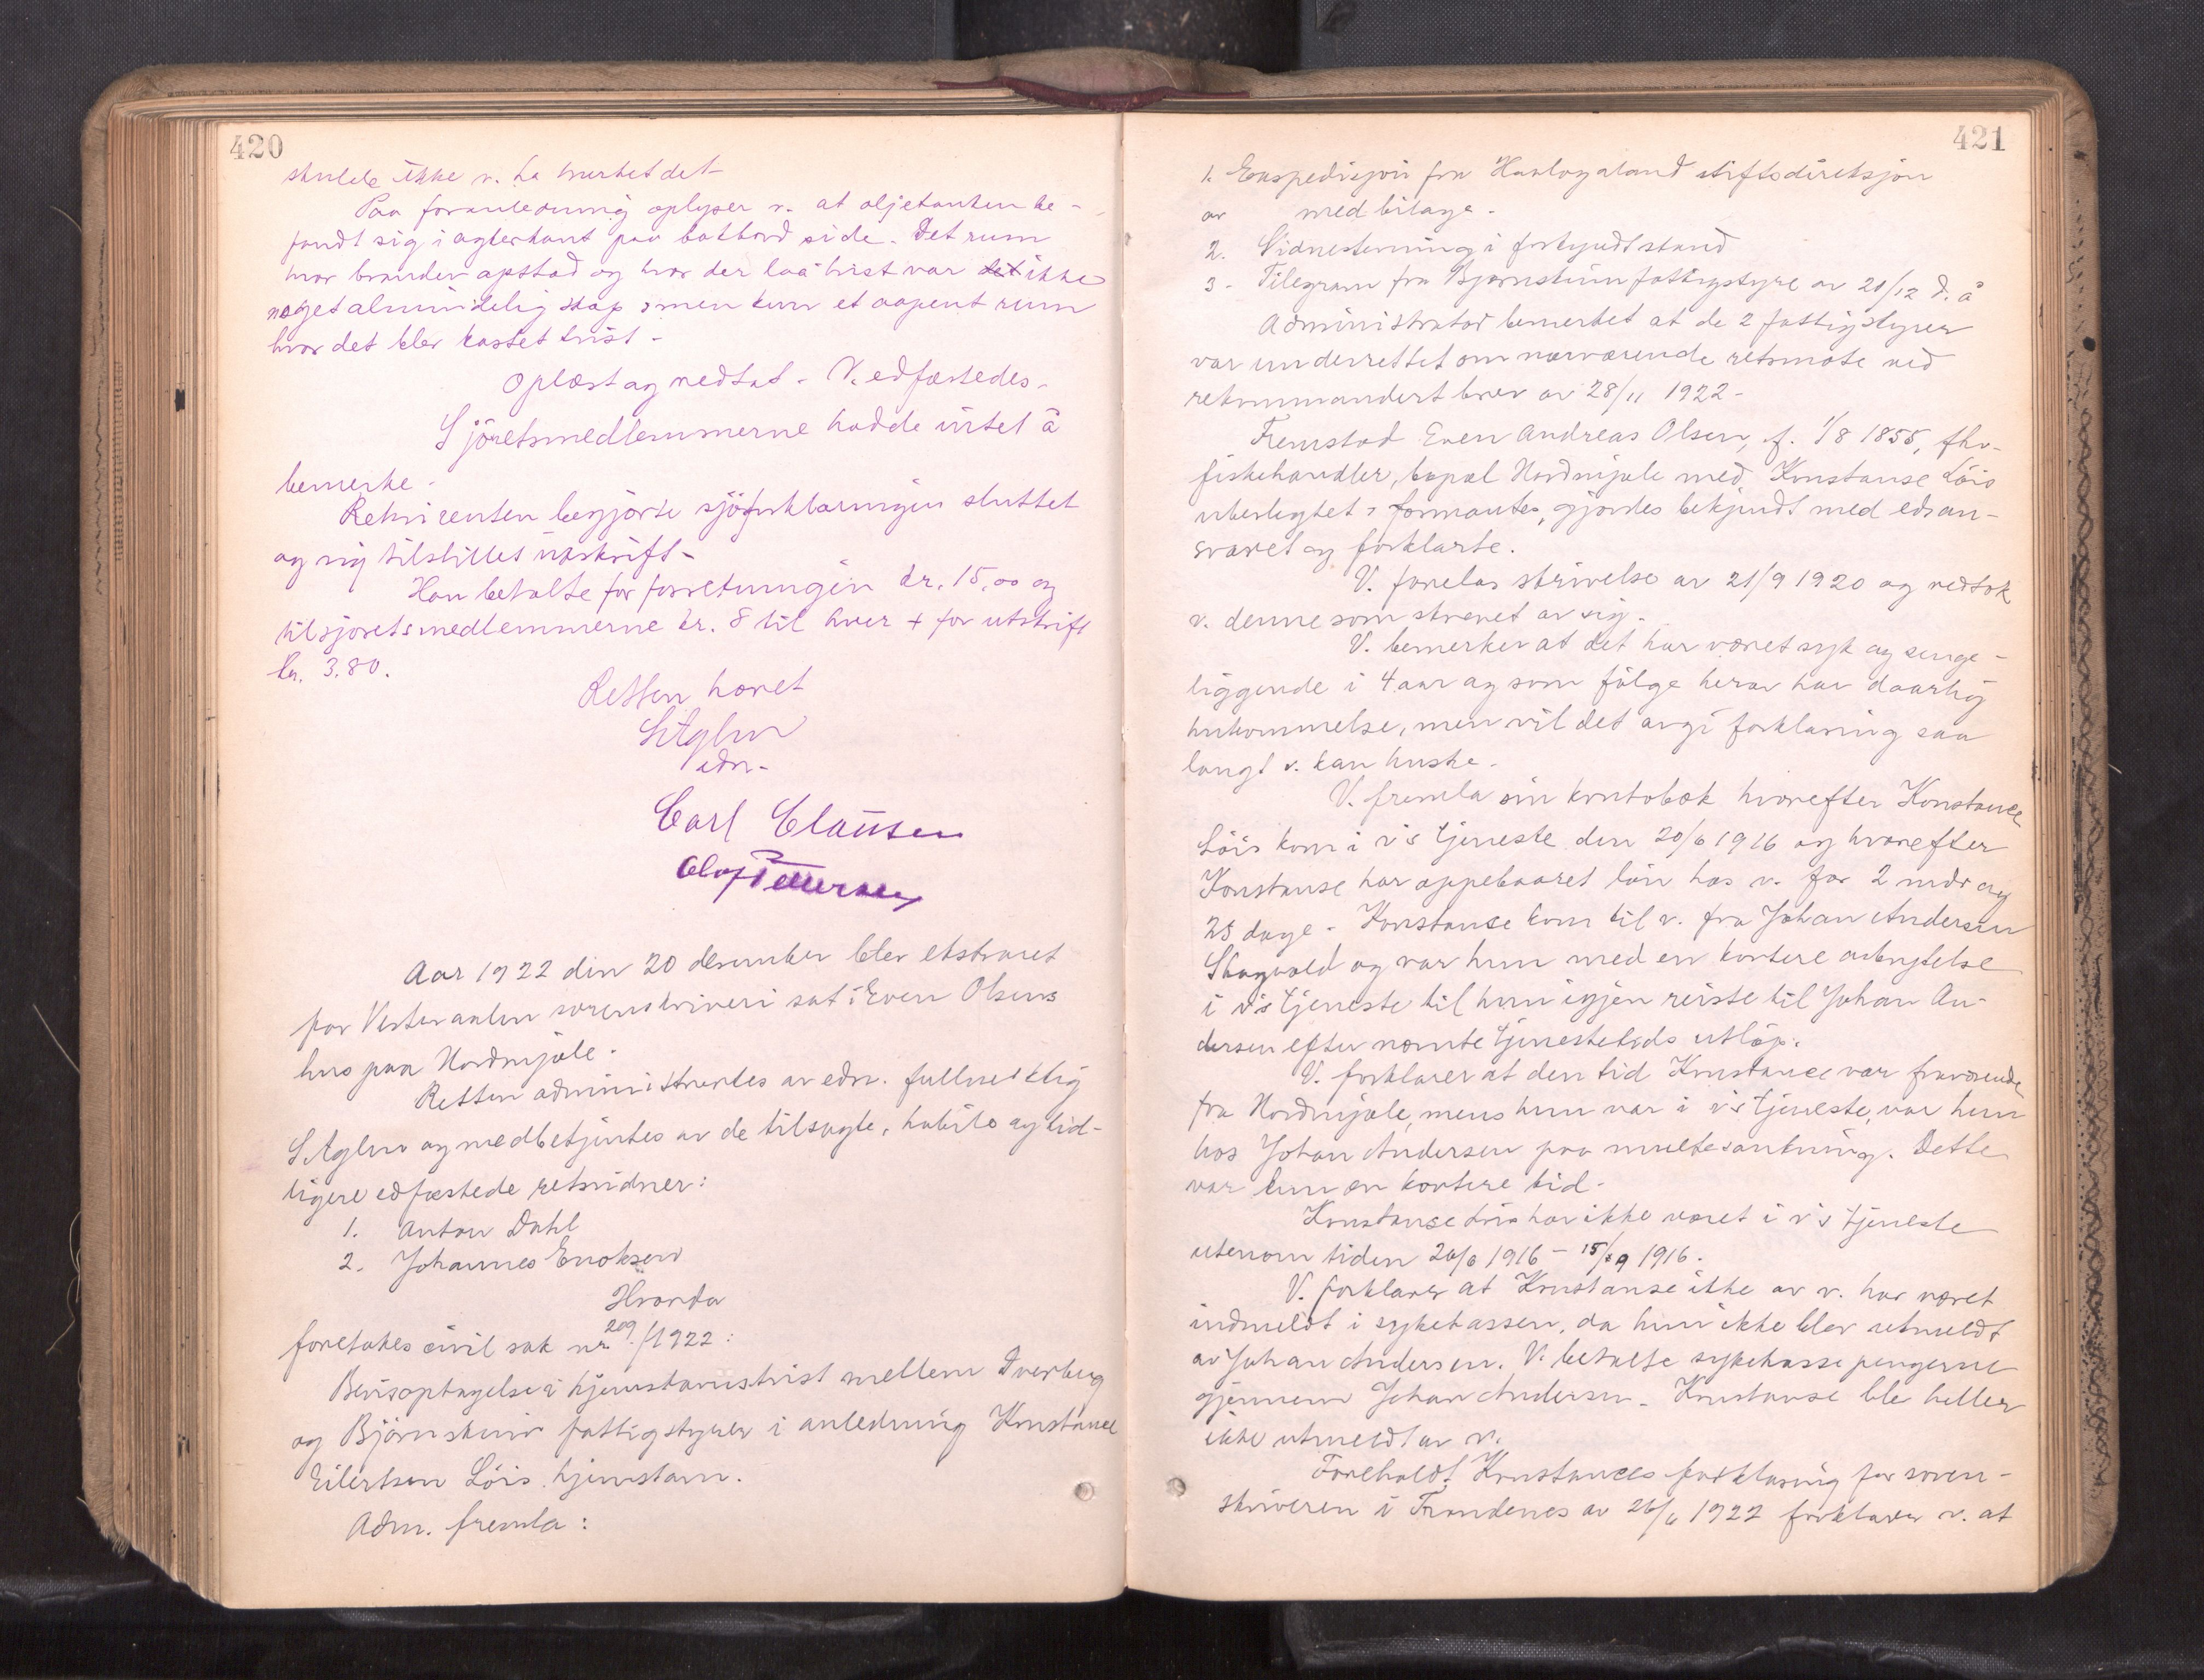 420
skulde ikke v. ha merket det
Paa foranledning oplyser v. at oljetanken be-
fandt sig i agterkant paa babbord side. Det rum
hvor branden opstod og hvor der laa tvist var det ikke
noget almindelig skap men kun et aapent rum
hvor det blev kastet tvist -
Oplæst og vedtat - V. edfæstedes -
Sjöretsmedlemmerne hadde intet å
bemerke -
Rekvirenten begjærte sjöforklaringen sluttet
og sig tilstillet utskrift -
Han betalte for forretningen kr. 15,00 og
til sjöretsmedlemmerne kr. 8 til hver + for utskrift
kr. 3.80.
Retten hævet
edn -
Carl Clausen
Olaf Pettersen
Aar 1922 den 20 desember blev ekstraret
for Vesteraalen sorenskriveri sat i Even Olsens
hus paa Nordmjæle -
Retten administrertes av edn. fullmektig
og medbetjentes av de tilsagte, habile og tid-
ligere edfæstede retsvidner:
1. Anton Dahl
2. Johannes Enoksen
Hvorda
foretokes civil sak nr. 209/1922:
Bevisoptagelse i hjemstavnstvist mellem Dverberg
og Björnskinn fattigstyrer i anledning Konstanse
Eilertsen Löis hjemstavn.
Adm. fremla:
421
1. Ekspedisjon fra Haalogaland stiftsdireksjon
av med bilage -
2. Vidnestevning i forkyndt stand
3 - Telegram fra Bjørnskinn fattigstyre av 20/12 d. å
Administrator bemerket at de 2 fattigstyrer
var underrettet om nærværende retsmøte ved
rekommandert brev av 28/11 1922 -
Fremstod Even Andreas Olsen, f. 1/8 1855, fhv.
fiskehandler, bopæl Nordmjæle med Konstanse Löis
ubeslegtet, formantes, gjordes bekjendt med edsan-
svaret og forklarte.
V. forelas skrivelse av 21/9 1920 og vedtok
v. denne som skrevet av sig.
V. bemerker at det har været syk og senge-
liggende i 4 aar og som følge herav har daarlig
hukommelse, men vil det avgi forklaring saa
langt v. kan huske -
V. fremla sin kontobok hvorefter Konstanse
Löis kom i v's tjeneste den 20/6 1916 og hvorefter
Konstanse har oppebaaret lön hos v. for 2 mdr og
25 dage - Konstanse kom til v. fra Johan Andersen
Skogvold og var hun med en kortere avbrytelse
i v's tjeneste til hun igjen reiste til Johan An-
dersen efter nævnte tjenestetids utløp.
V. forklarer at den tid Konstanse var fraværende
fra Nordmjæle, mens hun var i v's tjeneste, var hun
hos Johan Andersen paa multesankning. Dette
var kun en kortere tid -
Konstanse Löis har ikke været i v's tjeneste
utenom tiden 20/6 1916 - 15/9 1916.
V. forklarer at Konstanse ikke av v. har været
indmeldt i sykekassen, da hun ikke blev utmeldt
av Johan Andersen. V. betalte sykekassepengerne
gjennem Johan Andersen - Konstanse ble heller
ikke utmeldt av v.
Foreholdt Konstanses forklaring for soren-
skriveren i Trondenes av 26/6 1922 forklarer v. at